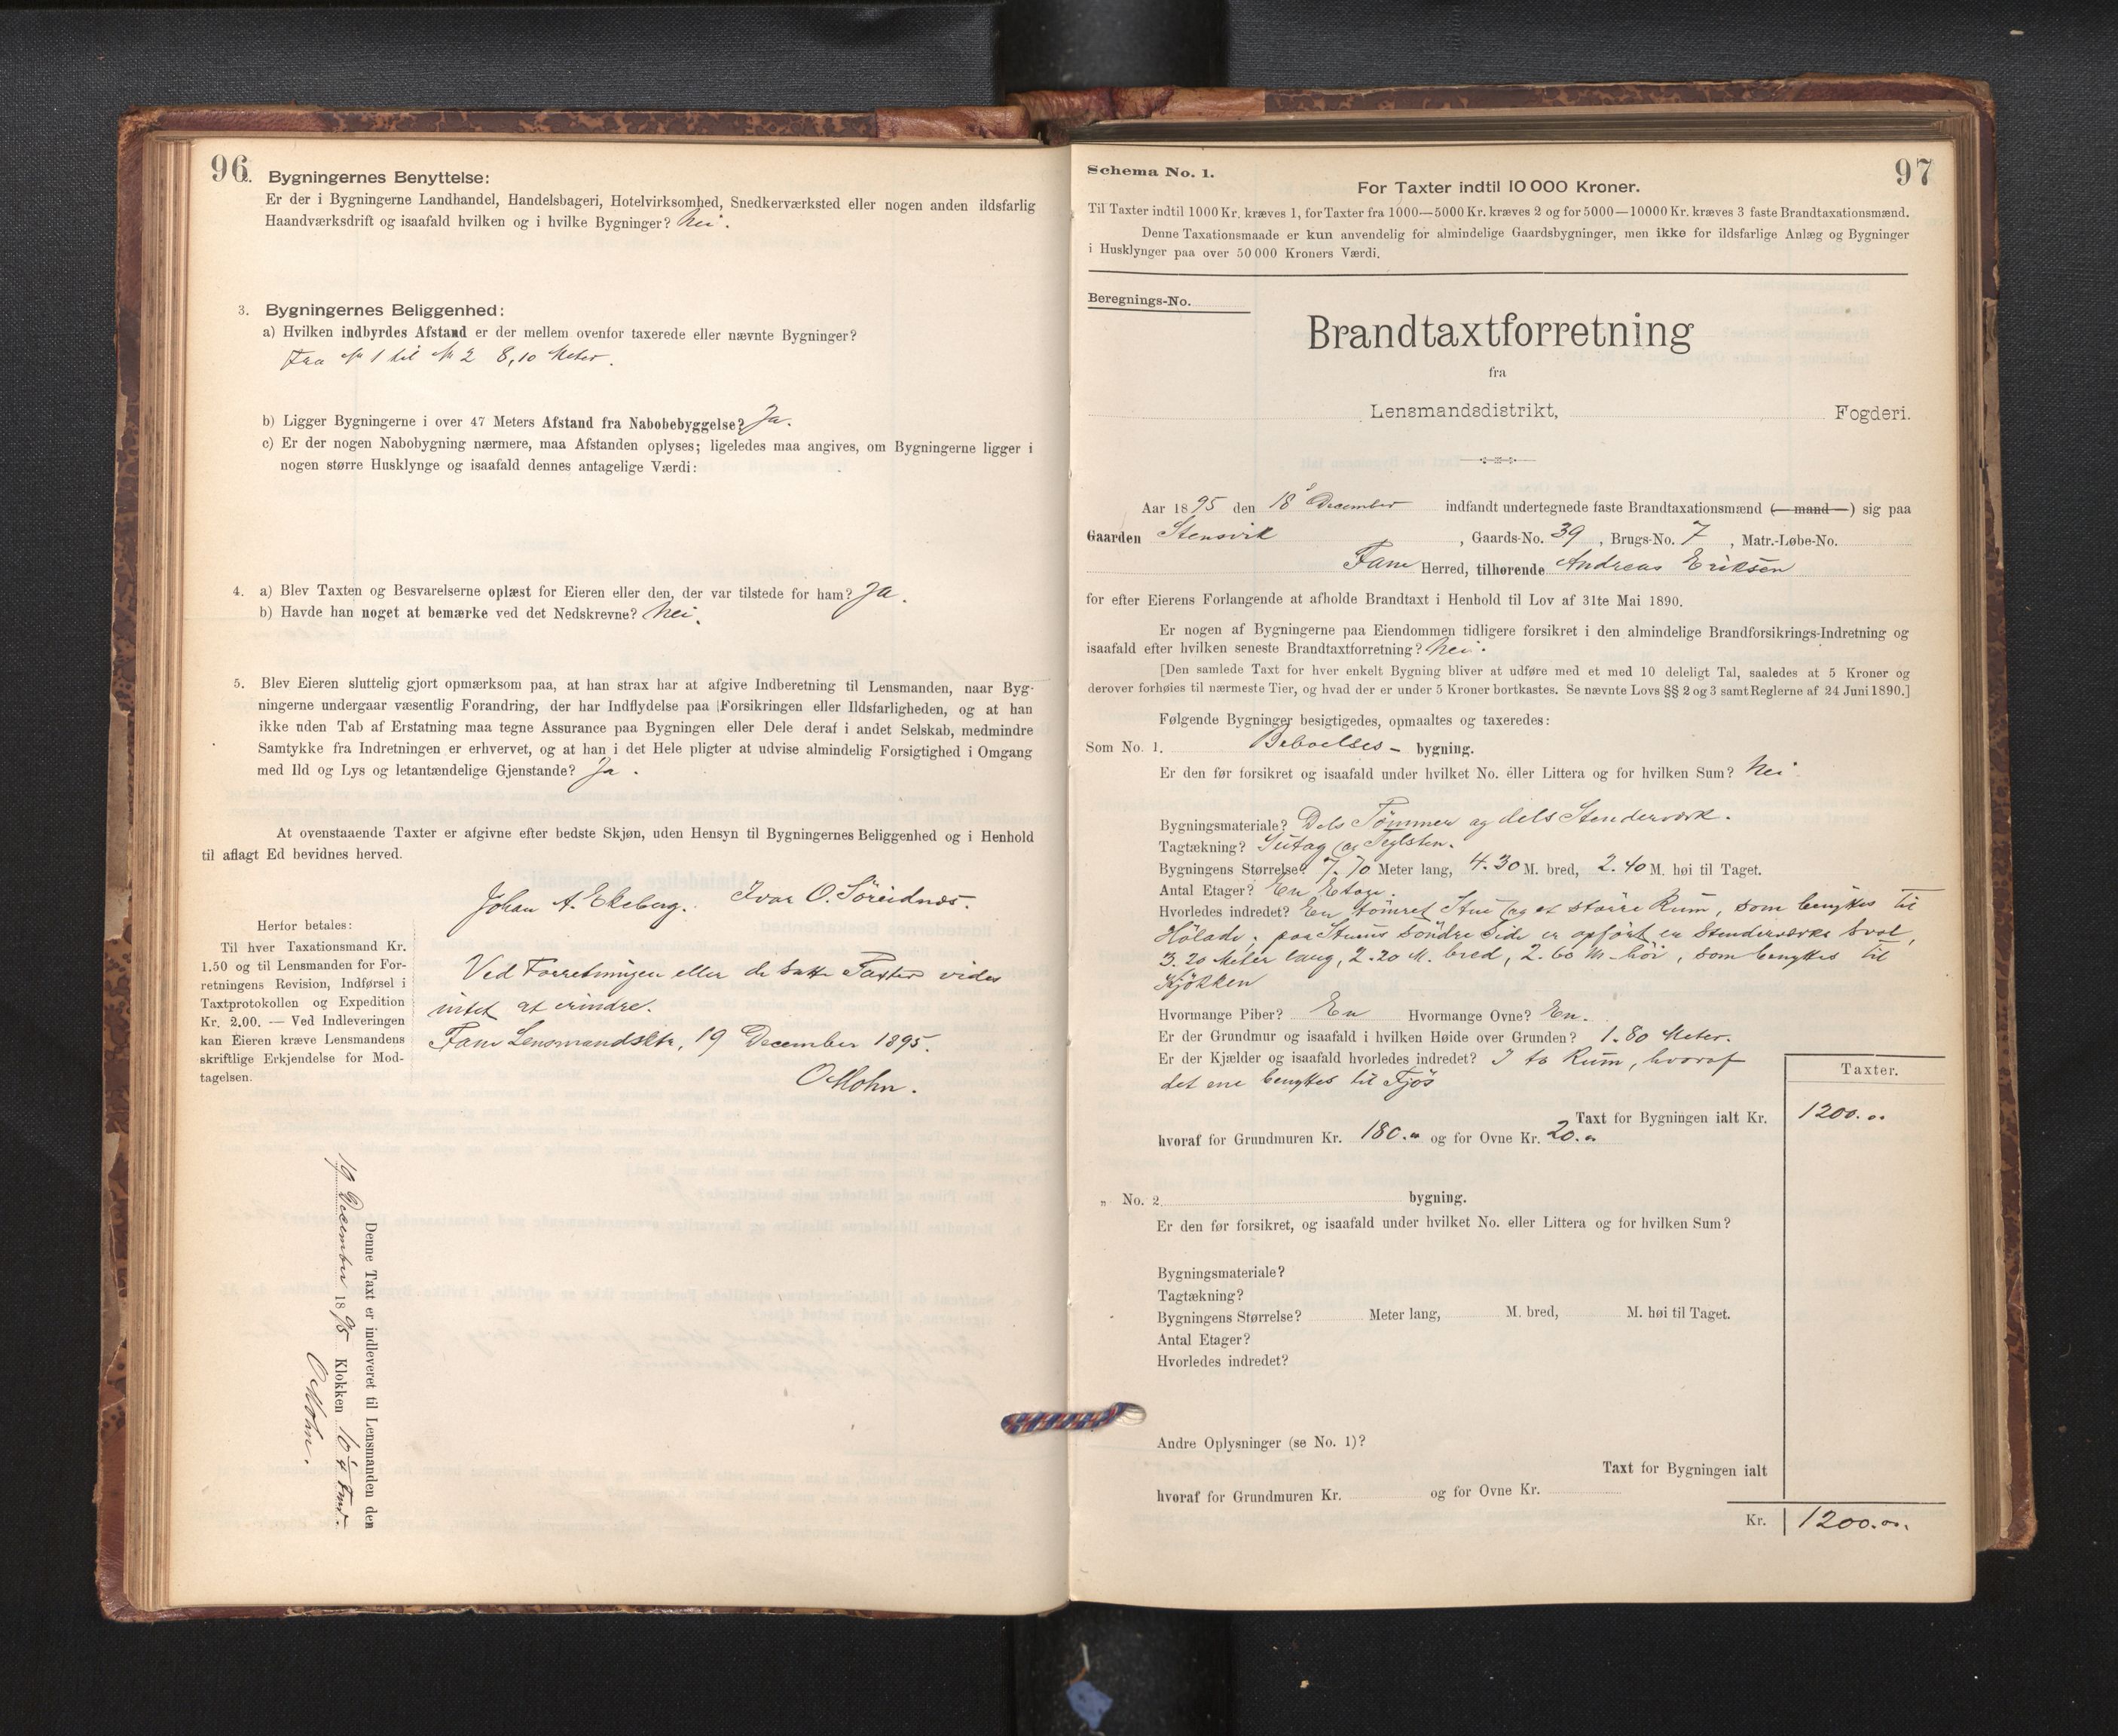 96.
Bygningernes Benyttelse:
Er der i Bygningerne Landhandel, Handelsbageri, Hotelvirksomhed, Snedkerværksted eller nogen anden ildsfarlig
Haandværksdrift og isaafald hvilken og i hvilke Bygninger? Nei.
3. Bygningernes Beliggenhed:
a) Hvilken indbyrdes Afstand er der mellem ovenfor taxerede eller nævnte Bygninger?
Fra № 1 til № 2 8,10 Meter.
b) Ligger Bygningerne i over 47 Meters Afstand fra Nabobebyggelse? Ja.
c) Er der nogen Nabobygning nærmere, maa Afstanden oplyses; ligeledes maa angives, om Bygningerne ligger i
nogen større Husklynge og isaafald dennes antagelige Værdi:
4. a) Blev Taxten og Besvarelserne oplæst for Eieren eller den, der var tilstede for ham? Ja.
b) Havde han noget at bemærke ved det Nedskrevne? Nei.
5. Blev Eieren sluttelig gjort opmærksom paa, at han strax har at afgive Indberetning til Lensmanden, naar Byg-
ningerne undergaar væsentlig Forandring, der har Indflydelse paa Forsikringen eller Ildsfarligheden, og at han
ikke uden Tab af Erstatning maa tegne Assurance paa Bygningen eller Dele deraf i andet Selskab, medmindre
Samtykke fra Indretningen er erhvervet, og at han i det Hele pligter at udvise almindelig Forsigtighed i Omgang
med Ild og Lys og letantændelige Gjenstande? Ja.
At ovenstaaende Taxter er afgivne efter bedste Skjøn, uden Hensyn til Bygningernes Beliggenhed og i Henhold
til aflagt Ed bevidnes herved.
Johan A. Ekeberg. Ivar O. Söreidnes.
Herfor betales:
Til hver Taxationsmand Kr.
1.50 og til Lensmanden for For-
retningens Revision, Indførsel i
Taxtprotokollen og Expedition
Kr. 2.00. — Ved Indleveringen
kan Eieren kræve Lensmandens
skriftlige Erkjendelse for Mod-
tagelsen.
Ved Forretningen eller de satte Taxter vides
intet at erindre.
Fane Lensmandsktr, 19 December 1895.
O Mohn.
Denne Taxt er indleveret til Lensmanden den
19 December 1895 Klokken 10 ¼ Fmd.
O Mohn.
97
Schema No. 1.
For Taxter indtil 10 000 Kroner.
Til Taxter indtil 1000 Kr. kræves 1, for Taxter fra 1000—5000 Kr. kræves 2 og for 5000—10000 Kr. kræves 3 faste Brandtaxationsmænd.
Denne Taxationsmaade er kun anvendelig for almindelige Gaardsbygninger, men ikke for ildsfarlige Anlæg og Bygninger
i Husklynger paa over 50 000 Kroners Værdi.
Beregnings-No.
Brandtaxtforretning
fra
Lensmandsdistrikt, Fogderi.
Aar 1895 den 18 December indfandt undertegnede faste Brandtaxationsmænd (mand) sig paa
Gaarden Stensvik, Gaards-No. 39, Brugs-No. 7, Matr.-Løbe-No.
Fane Herred, tilhørende Andreas Eriksen
for efter Eierens Forlangende at afholde Brandtaxt i Henhold til Lov af 31te Mai 1890.
Er nogen af Bygningerne paa Eiendommen tidligere forsikret i den almindelige Brandforsikrings-Indretning og
isaafald efter hvilken seneste Brandtaxtforretning? Nei.
[Den samlede Taxt for hver enkelt Bygning bliver at udføre med et med 10 deleligt Tal, saaledes at 5 Kroner og
derover forhøies til nærmeste Tier, og hvad der er under 5 Kroner bortkastes. Se nævnte Lovs §§ 2 og 3 samt Reglerne af 24 Juni 1890.]
Følgende Bygninger besigtigedes, opmaaltes og taxeredes:
Som No. 1. Beboelses- bygning.
Er den før forsikret og isaafald under hvilket No. eller Littera og for hvilken Sum? Nei
Bygningsmateriale? Dels Tömmer og dels Stenderværk.
Tagtækning? Sutag og Teglsten.
Bygningens Størrelse? 7.70 Meter lang, 4.30 M. bred, 2.40 M. høi til Taget.
Antal Etager? En Etage.
Hvorledes indredet? En tömret Stue og et större Rum, som benyttes til
Hölade; paa Stuens söndre Side er opfört en Stenderværks Sval,
3.20 Meter lang, 2.20 M. bred, 2.60 M. höi, som benyttes til
Kjökken
Hvormange Piber? En Hvormange Ovne? En.
Er der Grundmur og isaafald i hvilken Høide over Grunden? 1.80 Meter.
Er der Kjælder og isaafald hvorledes indredet? I to Rum, hvoraf
det ene benyttes til Fjös
Taxter.
Taxt for Bygningen ialt Kr. 1200.00
hvoraf for Grundmuren Kr. 180.00 og for Ovne Kr. 20.00
„ No. 2 bygning.
Er den før forsikret, og isaafald under hvilket No. eller Littera og for hvilken Sum?
Bygningsmateriale?
Tagtækning?
Bygningens Størrelse? Meter lang, M. bred, M. høi til Taget.
Antal Etager?
Hvorledes indredet?
Andre Oplysninger (se No. 1)?
Taxt for Bygningen ialt
hvoraf for Grundmuren Kr. og for Ovne Kr.
Kr. 1200.00.